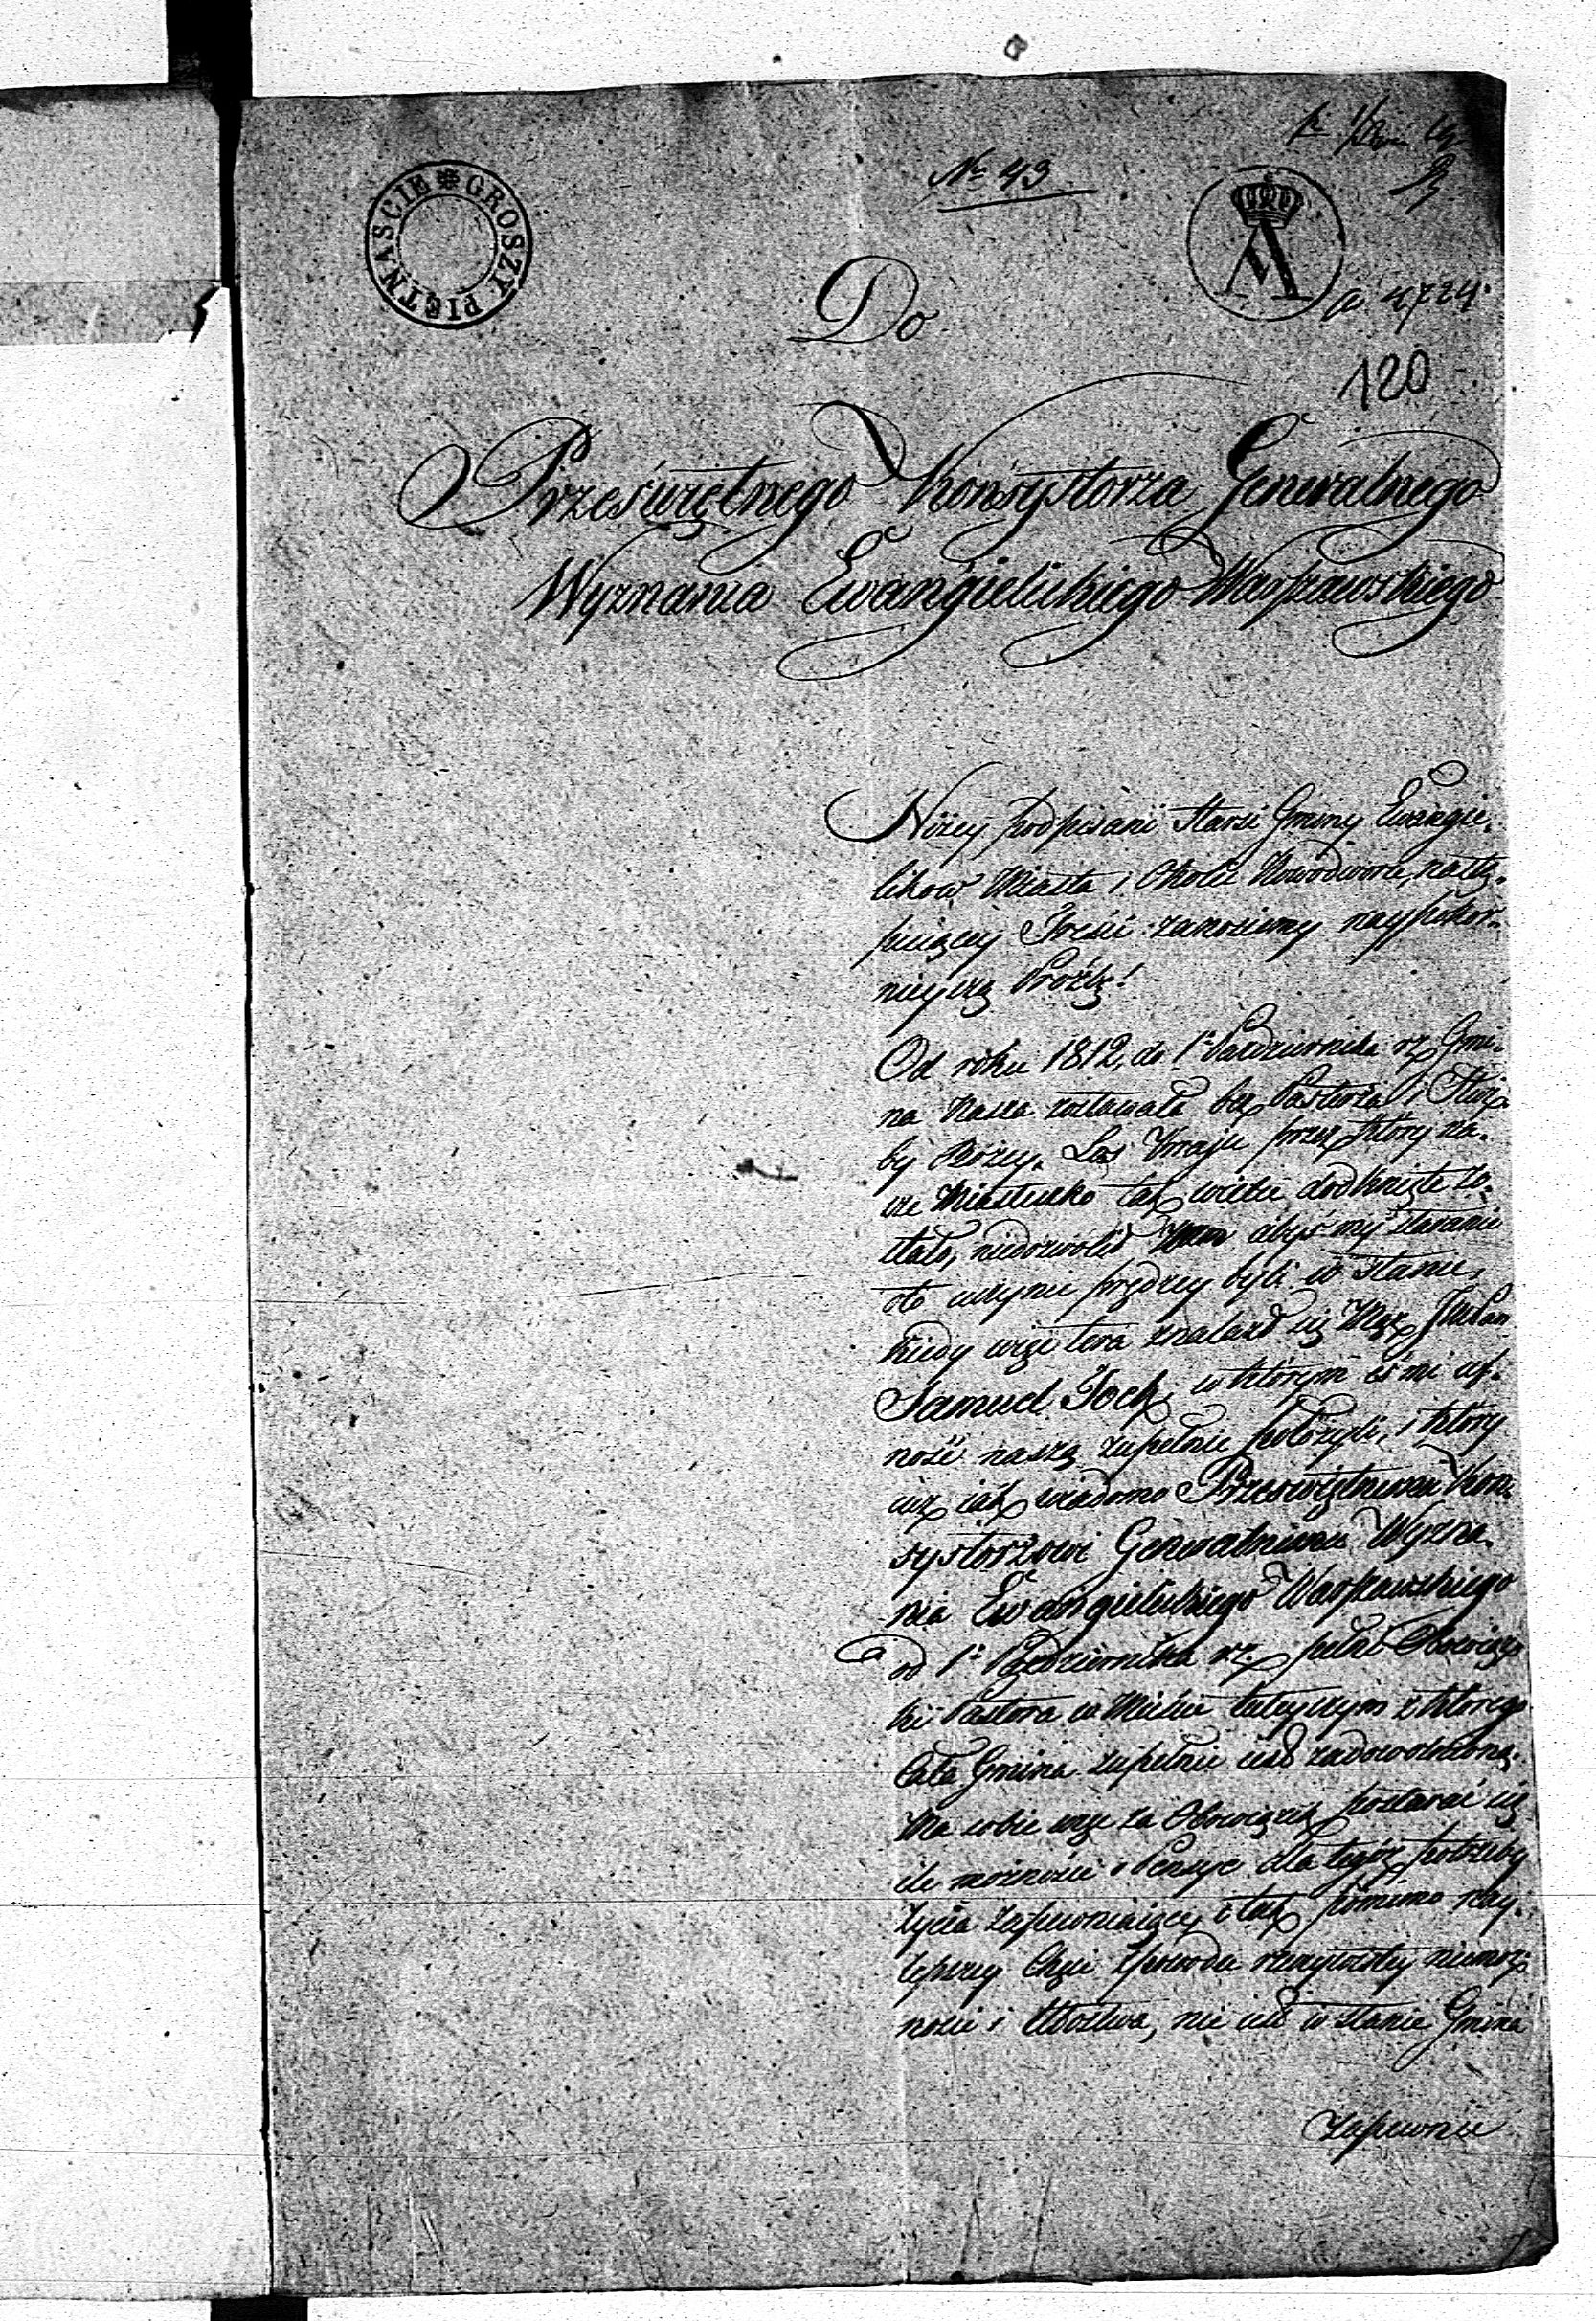 No 43
GROSZY PIĘTNAŚCIE
A
a 4724
120
Do
Przeświętnego Konsystorza Generalnego
Wyznania Ewangielickiego Warszawskiego
Niżey podpisani Starsi Gminy Ewangie-
likow Miasta i Okolic Nowodwora, nastę-
puiącey Treści zanosiemy naypokor-
nieyszą Proźbę!
Od roku 1812, do 1o Pazdziernika rz Gmi-
na Nasza zostawała bez Pasterza i Służ-
by Bożey. Los Kraju przez który na-
sze Miasteczko tak wielce dodknięte zo-
stało, niedozwolił Nam abyśmy staranie
oto uczynić prędzey byli w stanie,
kiedy więc tera znalazł się Mąż JmPan
Samuel Tock, w którym eśmi uf-
ność naszą zupełnie położyli, i który
iuz iak wiadomo Przeświętnemu Kon-
systorzowi Generalnemu Wyzna-
nia Ewangielickiego Warszawskiego
od 1o Pazdziernika rz. pełni Obowiąz-
ki Pastora w Mieście tuteyszym z którego
Cała Gmina zupełnie iest zadowolniona.
Ma sobie więc za Obowiązek postarać się
ile możności o Pensye dla tegoż potrzeby
życia zapewniaiącey i tak pomimo nay-
lepszey Chęci z powodu rzeczywistey niemoż-
ności i Ubóstwa, nie iest w stanie Gmina
zapewnić